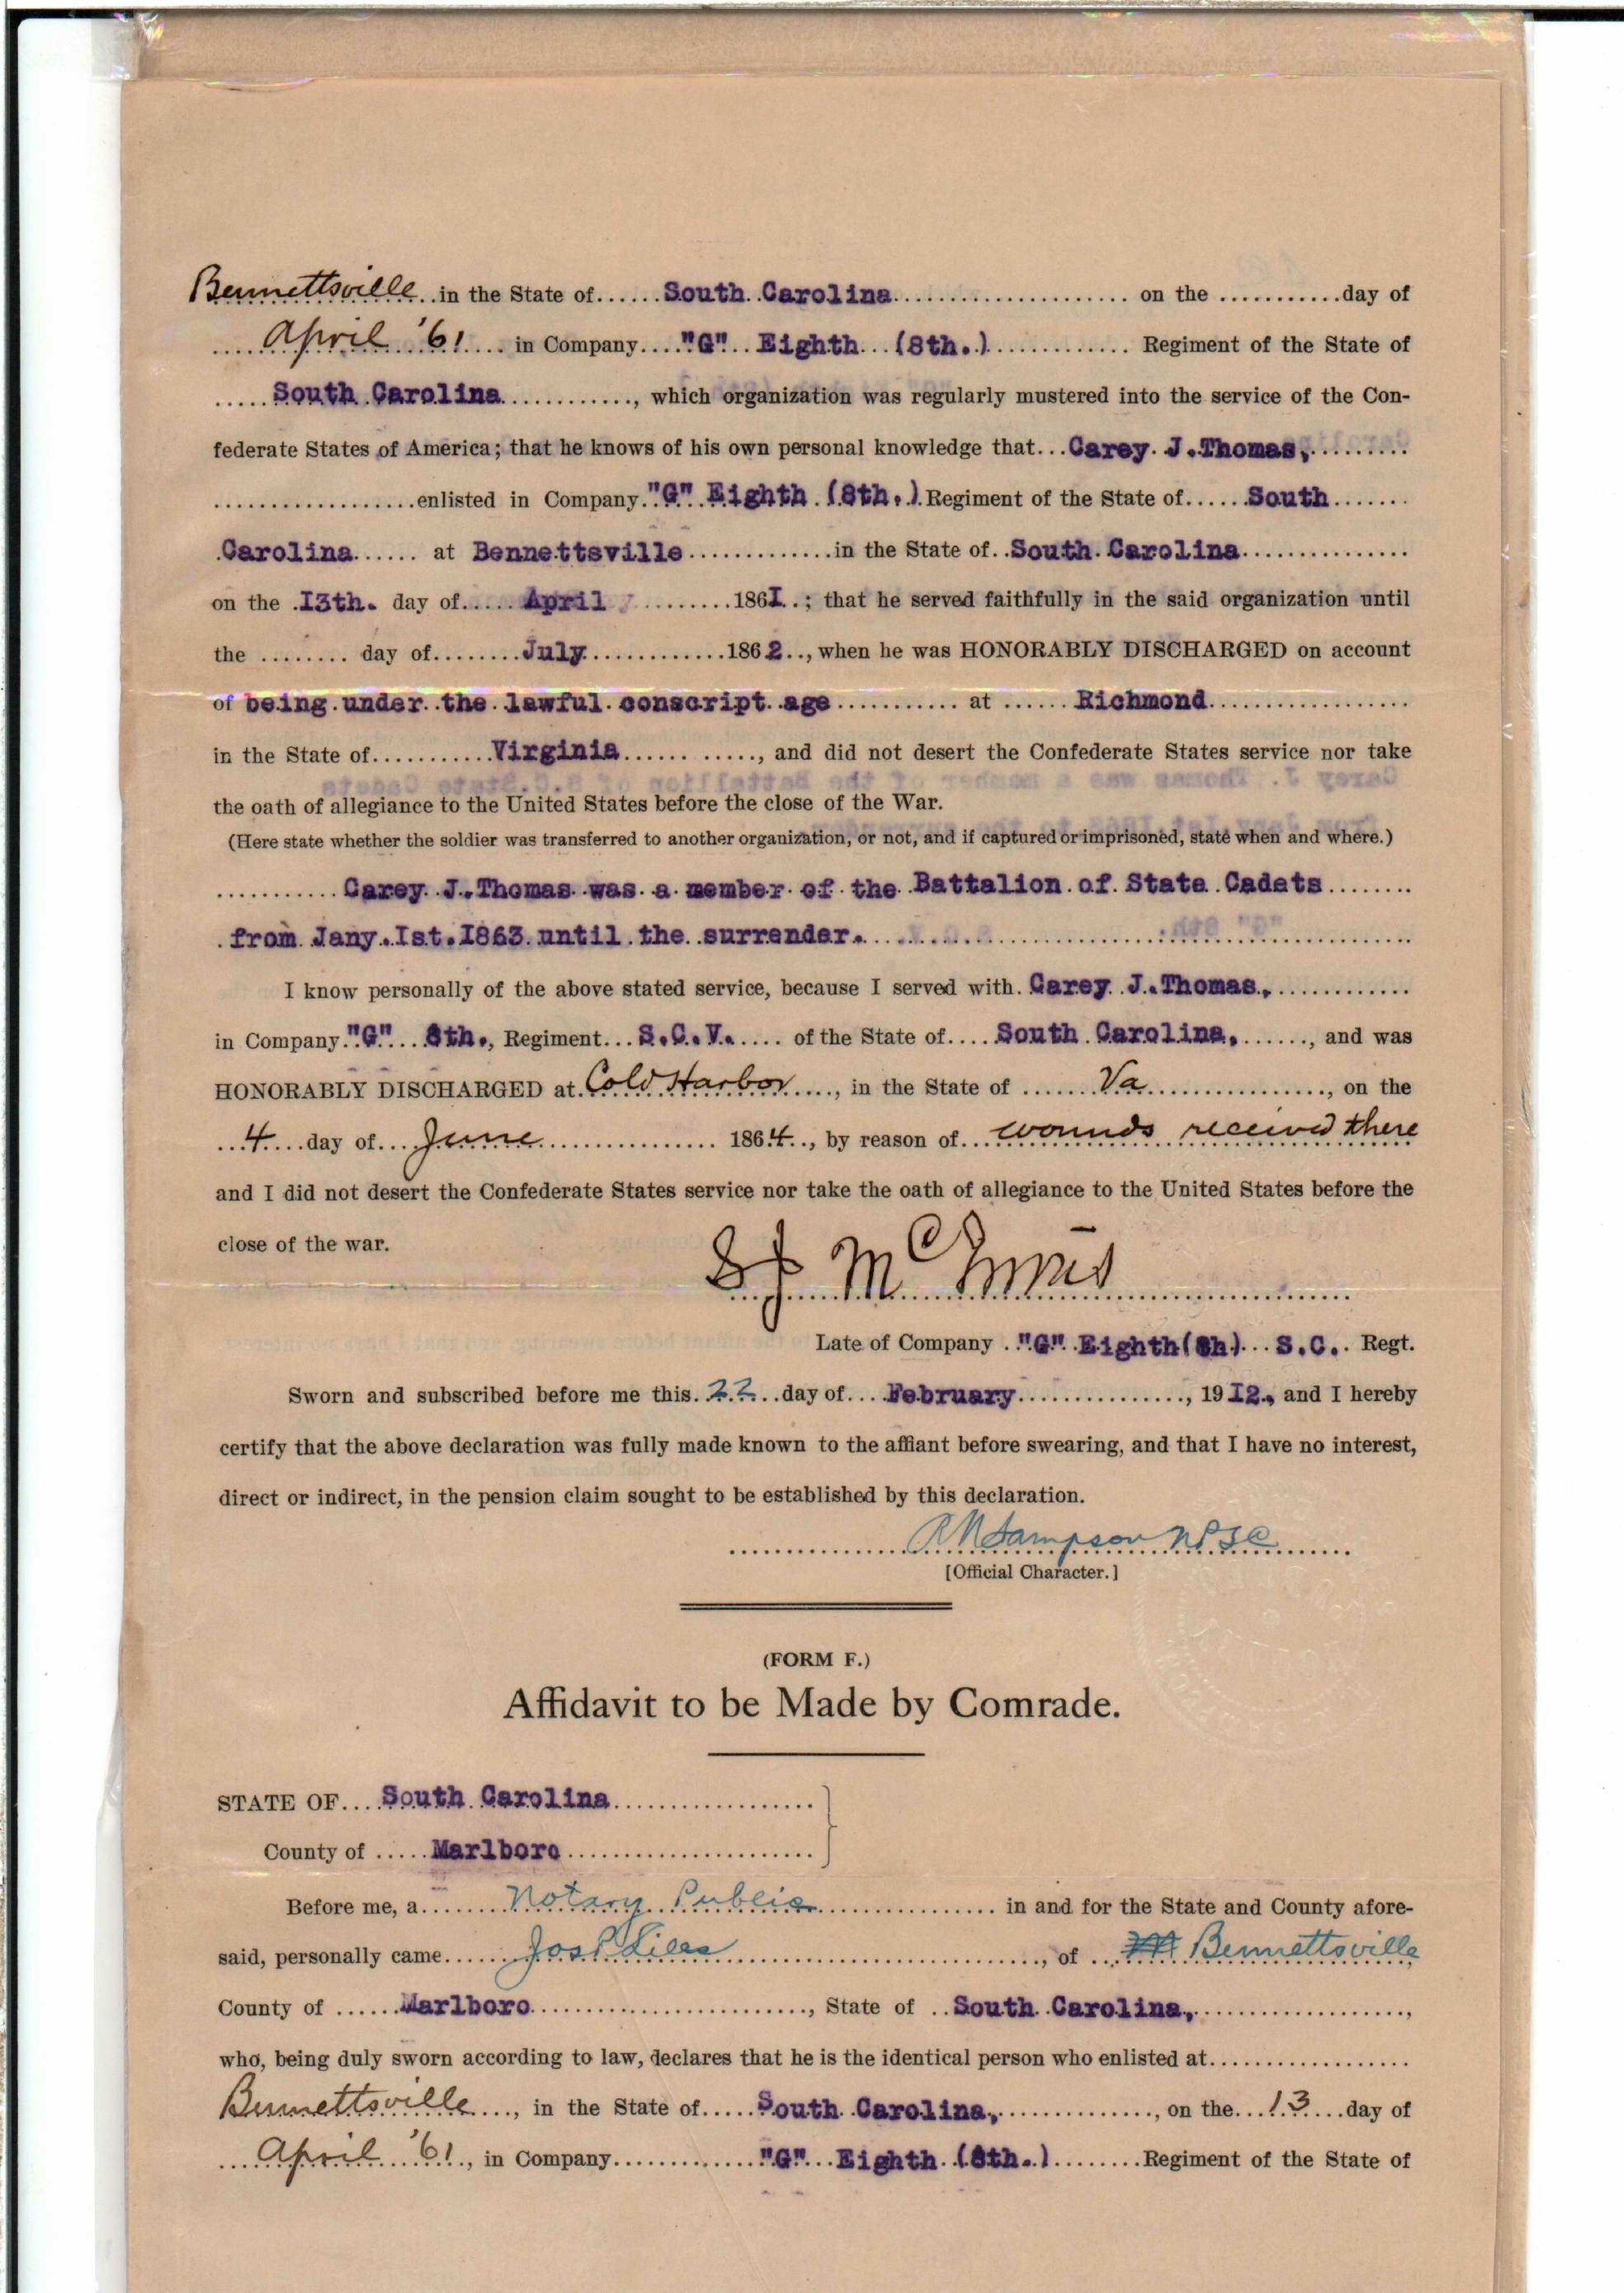 Bennettsville in the State of South Carolina on the day of
April '61 in Company "G" Eighth (8th.) Regiment of the State of
South Carolina, which organization was regularly mustered into the service of the Con-
federate States of America; that he knows of his own personal knowledge that Carey J. Thomas,
enlisted in Company "G" Eighth (8th.) Regiment of the State of South
Carolina at Bennettsville in the State of South Carolina
on the I3th. day of April 186I; that he served faithfully in the said organization until
the day of July 1862, when he was HONORABLY DISCHARGED on account
of being under the lawful conscript age at Richmond
in the State of Virginia, and did not desert the Confederate States service nor take
the oath of allegiance to the United States before the close of the War.
(Here state whether the soldier was transferred to another organization, or not, and if captured or imprisoned, state when and where.)
Carey J. Thomas was a member of the Battalion of State Cadets
from Jany. Ist. I863 until the surrender.
I know personally of the above stated service, because I served with Carey J. Thomas,
in Company "G" 8th., Regiment S.C.V. of the State of South Carolina, , and was
HONORABLY DISCHARGED at Cold Harbor, in the State of Va, on the
4 day of June 1864, by reason of wounds received there
and I did not desert the Confederate States service nor take the oath of allegiance to the United States before the
close of the war.
S J McInnis
Late of Company "G" Eighth (8h) S.C. Regt.
Sworn and subscribed before me this 22 day of February, 19I2., and I hereby
certify that the above declaration was fully made known to the affiant before swearing, and that I have no interest,
direct or indirect, in the pension claim sought to be established by this declaration.
Sampson NPSC
[Official Character.]
(FORM F.)
Affidavit to be Made by Comrade.
STATE OF South Carolina
County of Marlboro
Before me, a Notary Public in and for the State and County afore-
said, personally came Jos P Liles, of Bennettsville
County of Marlboro, State of South Carolina,,
who, being duly sworn according to law, declares that he is the identical person who enlisted at
Bennettsville, in the State of South Carolina,, on the 13 day of
April '61, in Company "G" Eighth (8th.) Regiment of the State of